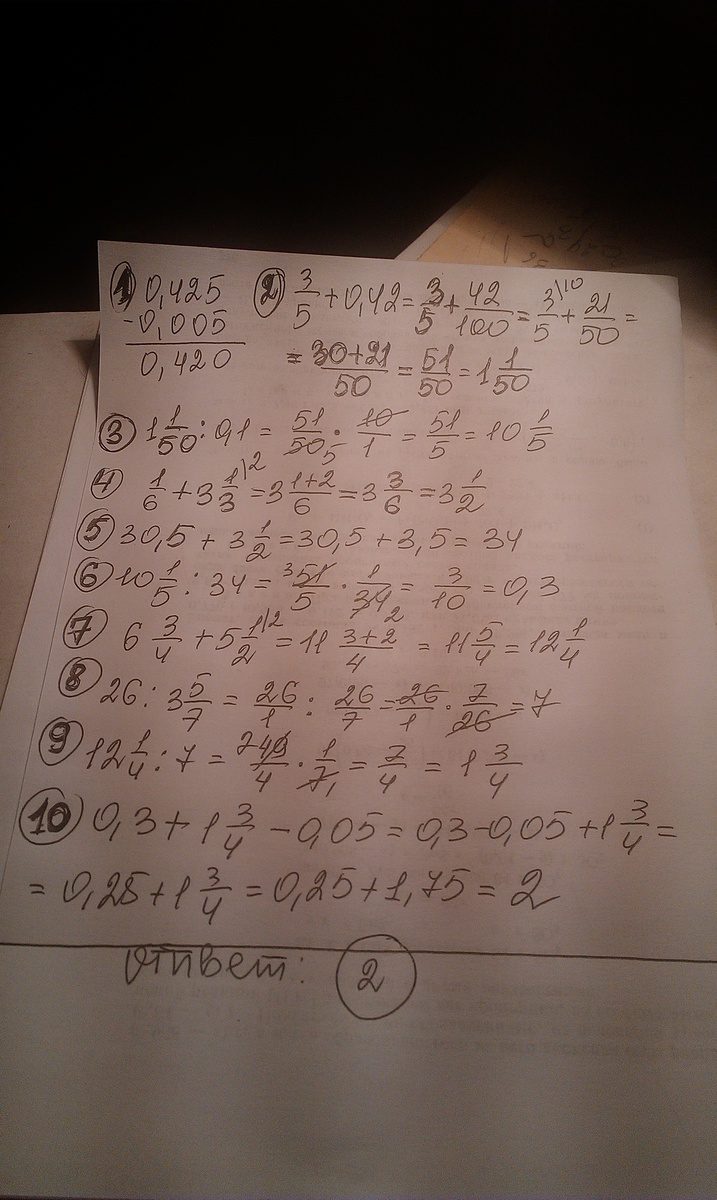 ① 0,425
-0,005
0,420
② 3/5 + 0,42 = 3/5 + 42/100 = 3/5 \10 + 21/50 =
= 30+21/50 = 51/50 = 1 1/50
③ 1 1/50 : 0,1 = 51/50 5 · 10/1 = 51/5 = 10 1/5
④ 1/6 + 3 1/3 \2 = 3 1+2/6 = 3 3/6 = 3 1/2
⑤ 30,5 + 3 1/2 = 30,5 + 3,5 = 34
⑥ 10 1/5 : 34 = 3 51/5 · 1/34 2 = 3/10 = 0,3
⑦ 6 3/4 + 5 1/2 \2 = 11 3+2/4 = 11 5/4 = 12 1/4
⑧ 26 : 3 5/7 = 26/1 : 26/7 = 26/1 · 7/26 = 7
⑨ 12 1/4 : 7 = 7 49/4 · 1/7 1 = 7/4 = 1 3/4
⑩ 0,3 + 1 3/4 - 0,05 = 0,3 - 0,05 + 1 3/4 =
= 0,25 + 1 3/4 = 0,25 + 1,75 = 2
Ответ: 2